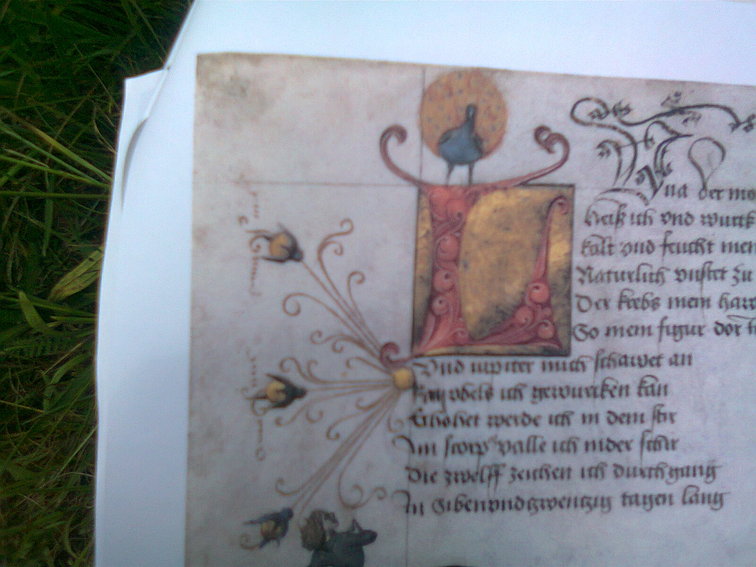 Luna der mo
heiß ich vnd wurck
kalt vnd feucht mein
Naturlich vnstet zu
Der krebs mein
So mein figur dor
Vnd iupiter mich schawet an
kayn vbels ich gewurcken kan
Ghohet werde ich in dem stir
Im scorp valle ich nider schir
Die zwelff zeichen ich durchgang
In Sibenvndzwentzig tagen lang